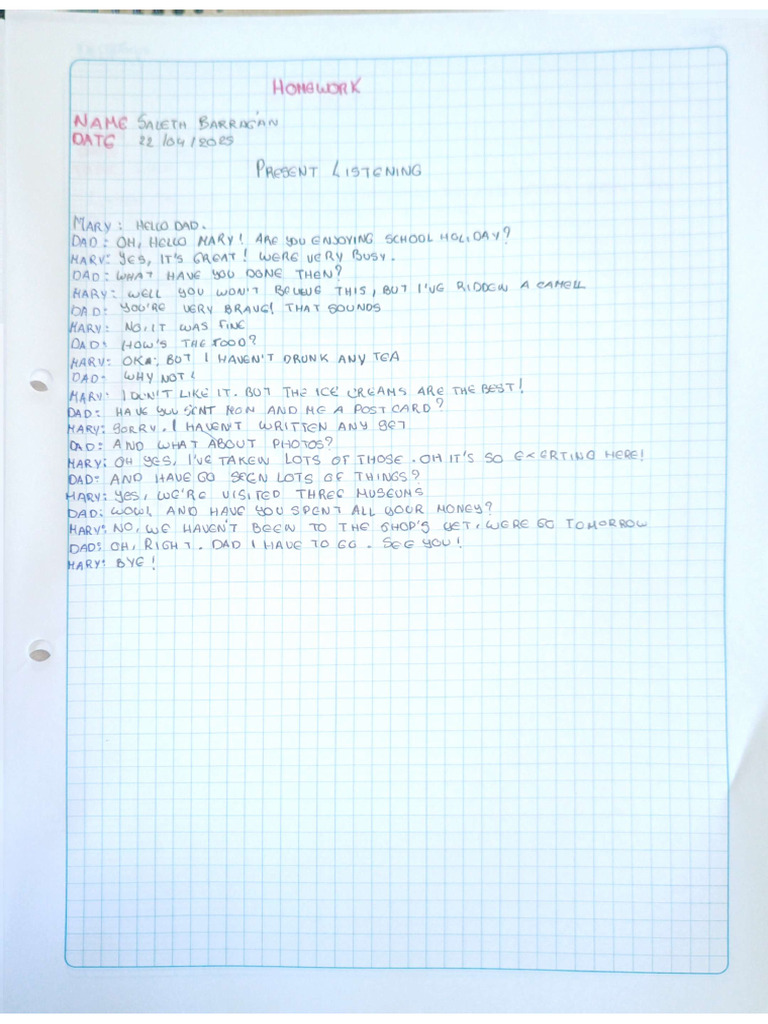 HOMEWORK
NAME SALETH BARRAGÁN
DATE 22/04/2025
PRESENT LISTENING
MARY: HELLO DAD.
DAD: OH, HELLO MARY! ARE YOU ENJOYING SCHOOL HOLIDAY?
MARY: YES, IT'S GREAT! WERE VERY BUSY.
DAD: WHAT HAVE YOU DONE THEN?
MARY: WELL YOU WON'T BELIEVE THIS, BUT I'VE RIDDEN A CAMELL
DAD: YOU'RE VERY BRAVE! THAT SOUNDS
MARY: NO, IT WAS FINE
DAD: HOW'S THE FOOD?
MARY: OKA, BUT I HAVEN'T DRUNK ANY TEA
DAD: WHY NOT!
MARY: I DON'T LIKE IT. BUT THE ICE CREAMS ARE THE BEST!
DAD: HAVE YOU SENT MON AND ME A POST CARD?
MARY: SORRY. I HAVEN'T WRITTEN ANY YET
DAD: AND WHAT ABOUT PHOTOS?
MARY: OH YES, I'VE TAKEN LOTS OF THOSE. OH IT'S SO EXERTING HERE!
DAD: AND HAVE GO SEEN LOTS OF THINGS?
MARY: YES, WE'RE VISITED THREE MUSEUMS
DAD: WOW!, AND HAVE YOU SPENT ALL YOUR MONEY?
MARY: NO, WE HAVEN'T BEEN TO THE SHOP'S YET, WERE GO TOMORROW
DAD: OH, RIGHT. DAD I HAVE TO GO. SEE YOU!
MARY: BYE!